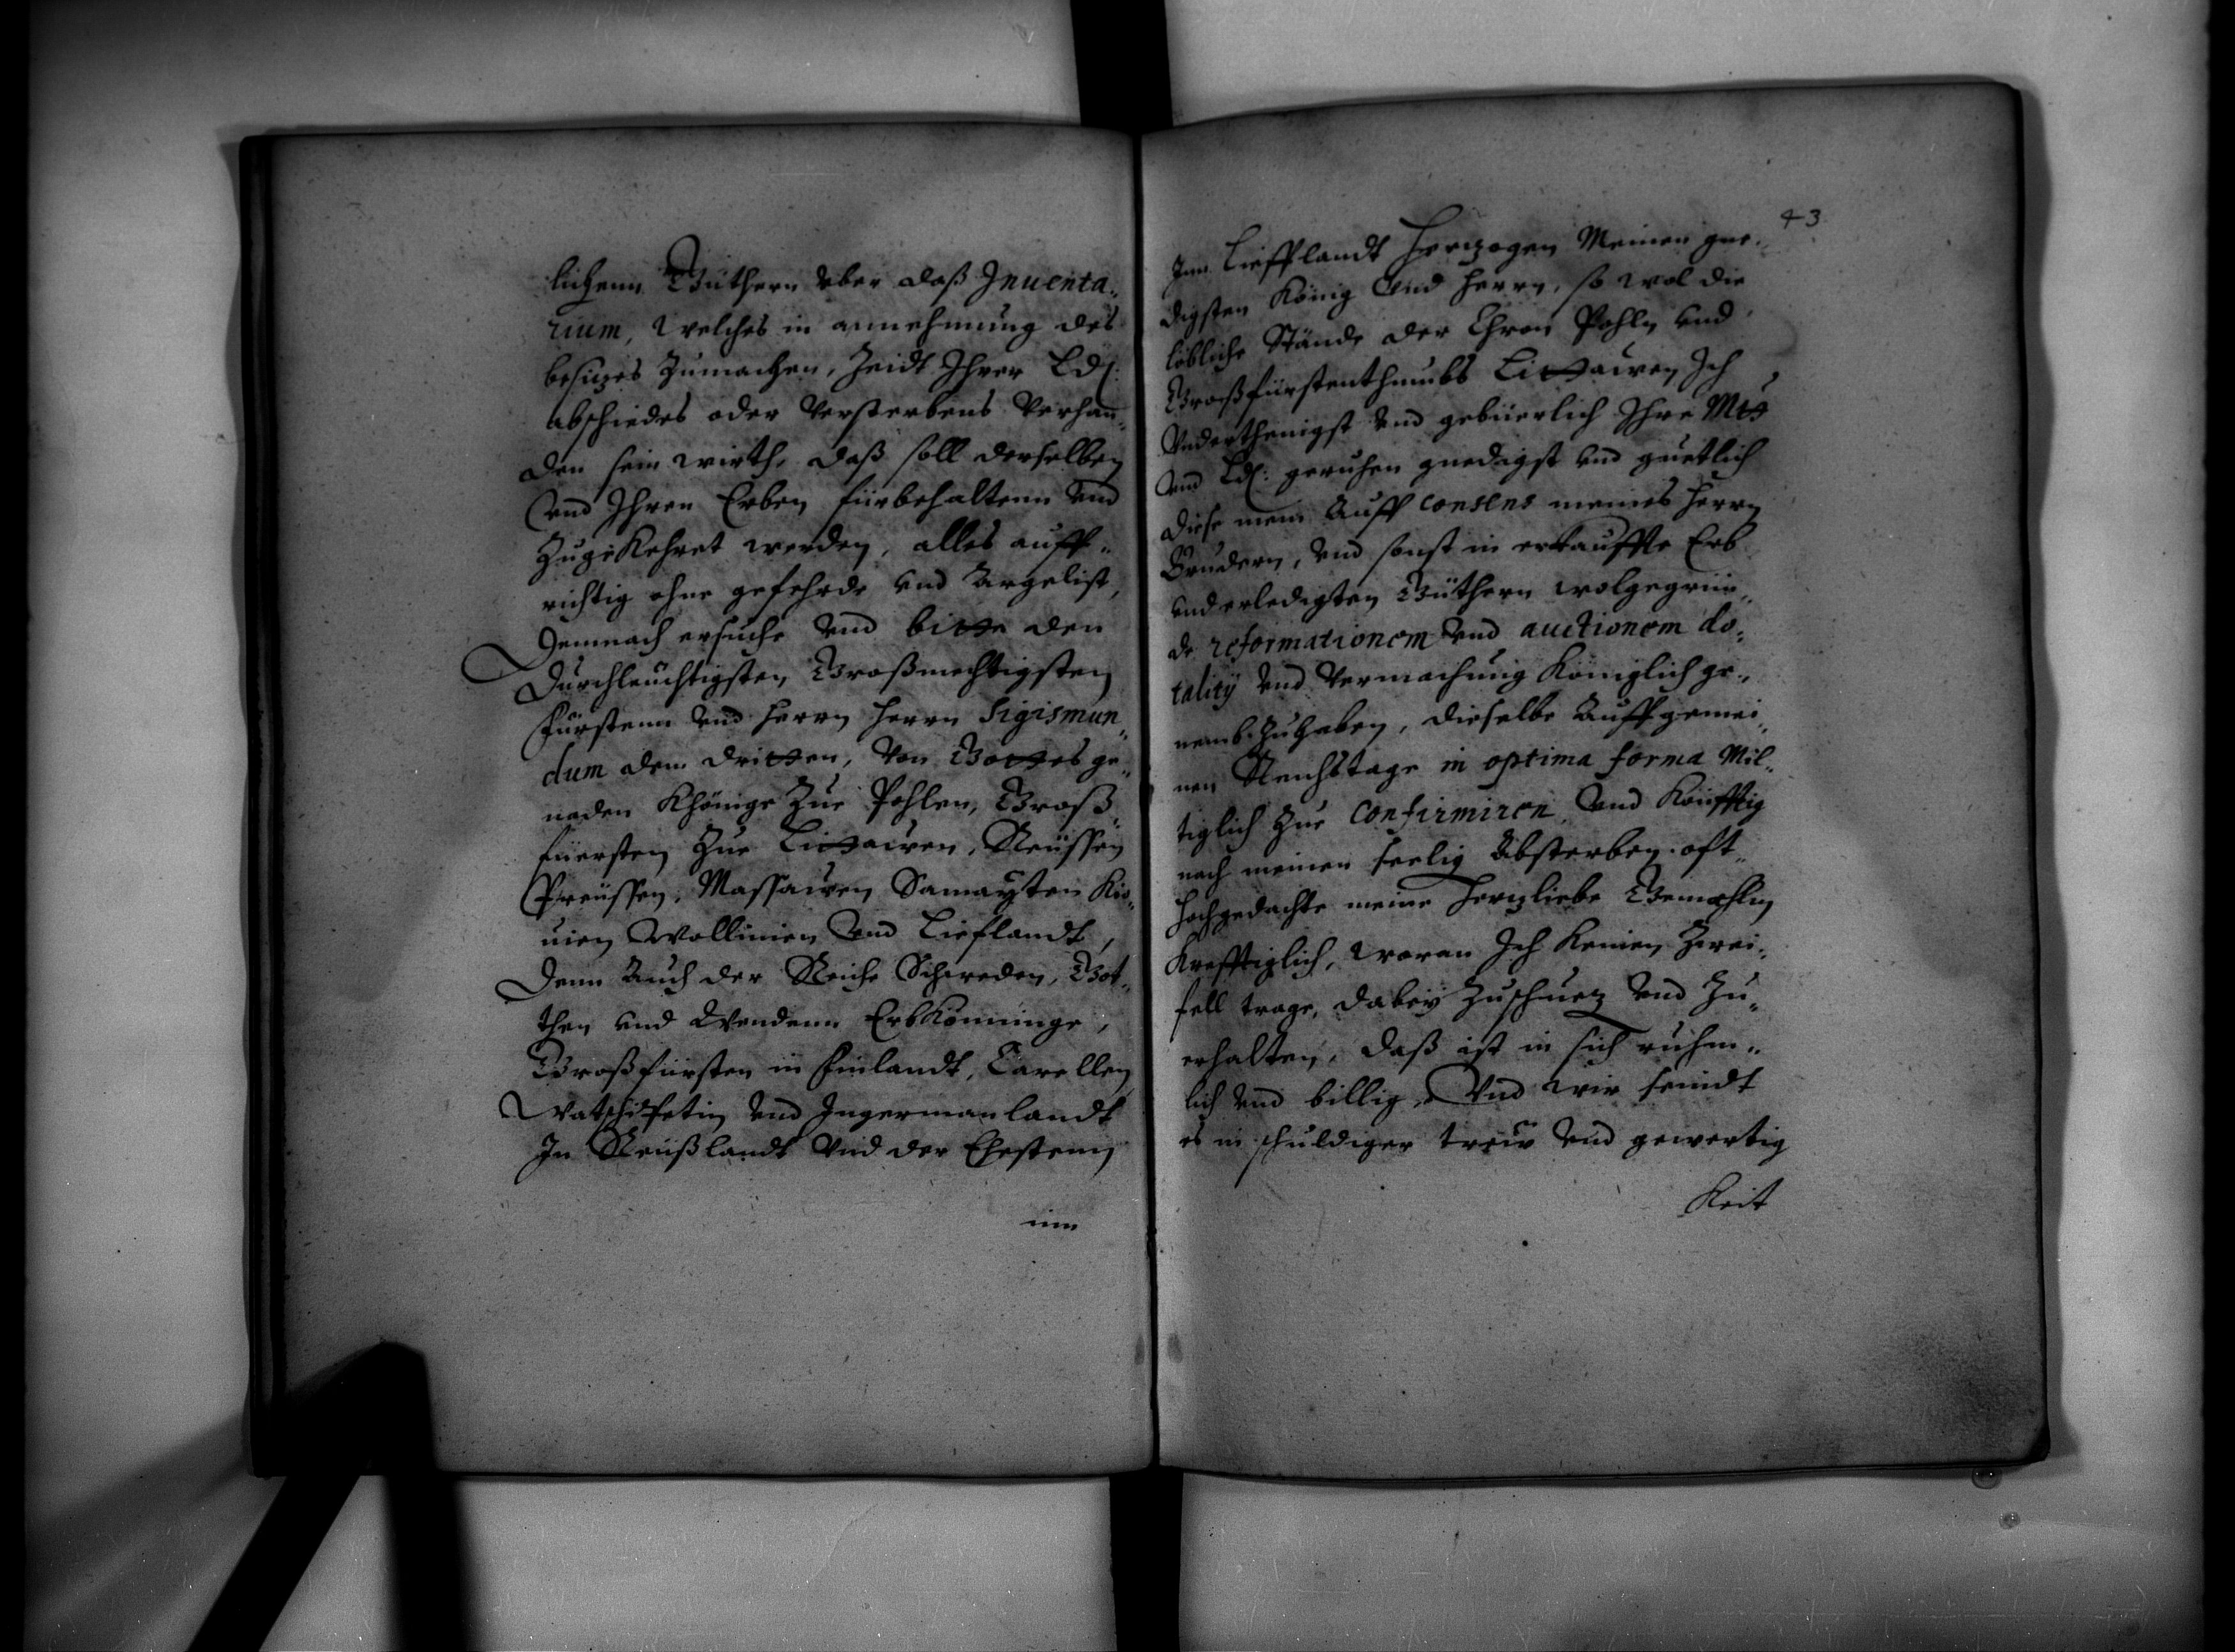 lichenn Güthern uber daß Inuenta„
rium, welches in annehmung des
besizes Zumachen, Zeidt Ihrer Ld:
abschiedes oder versterbens verhan„
den sein wirth, daß soll derselben
vnd Ihren Erben fürbehaltenn vnd
Zugekehret werden, alles auff„
richtig ohne gefehrde vnd Argelist,
Demnach ersuche vnd bitte den
Durchleuchtigsten Großmechtigsten
Fürstenn vnd Herrn Herrn Sigismun„
dum dem dritten, von Gottes ge„
naden Khönige Zue Pohlen, Groß„
füersten Zue Littawen, Reüssen
Preüssen, Massawen Samayten Kio„
uien Wollinien vnd Lieflandt,
Denn Auch der Reiche Schweden, Got„
then vnd Wendenn Erbkönninge,
Großfürsten in Finlandt, Carellen
Watschkypetin vnd Ingermanlandt
In Reußlandt vnd der Ehestenn
inn
43
Inn Liefflandt Herzogen Meinen gne„
digsten König vnd Herrn, so wol die
löbliche Stände der Chron Pohln vnd
Großfürstenthumbs Littawen Ich
Vnderthenigst vnd gebüerlich Ihre Mtt
vnd Ld: geruhen gnedigst vnd guetlich
diese mein Auff consens meines Herrn
Brudern, vnd sonst in erkauffte Erb
vnd erledigten Güthern wolgegrün„
de reformationem vnd auctionem do„
talitÿ vnd Vermachung Königlich ge„
nemb Zuhaben, dieselbe Auff gemei„
nen Reichstage in optima forma Mil„
tiglich Zue Confirmiren, vnd Künfftig
nach meinen seelig Absterben oft„
hochgedachte meine Herzliebe Gemahlin
Krefftiglich, woran Ich Keinen Zwei„
fell trage, dabeÿ Zuschuez vnd Zu„
erhalten, daß ist in sich ruhm„
lich vnd billig, Vnd wir seindt
es in schuldiger trew vnd gewertig
Keit